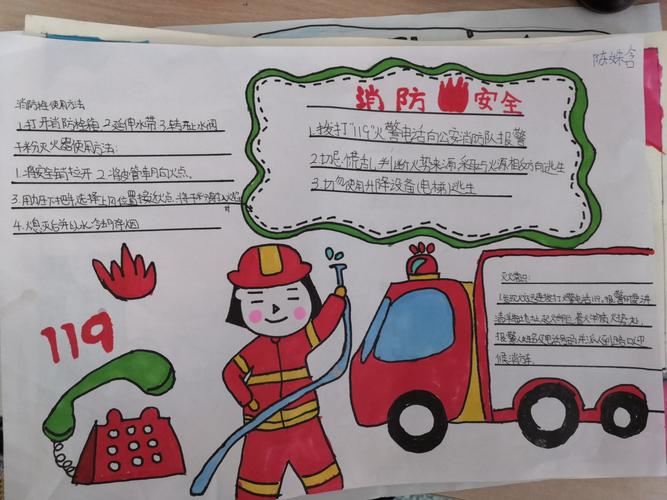 陈姝含
消防安全
1.拨打"119"火警电话向公安消防队报警
2.切忌慌乱,判断火势来源,采取与火源相反方向逃生
3.切勿使用升降设备(电梯)逃生
消防栓使用方法
1.打开消防栓箱 2.延伸水带 3.转开止水阀
干粉灭火器使用方法:
1.将安全销拉开 2.将皮管朝向火点。
3.用力压下把手,选择上风位置接近火点,将干粉射入火焰
4.熄灭后并以水冷却除烟
119
灭火常识:
1.发现火灾迅速拨打火警电话119,报警时要讲
清详细地址,起火部位,着火物质,火势大小,
报警人姓名及电话号码,并派人到路口迎
候消防车